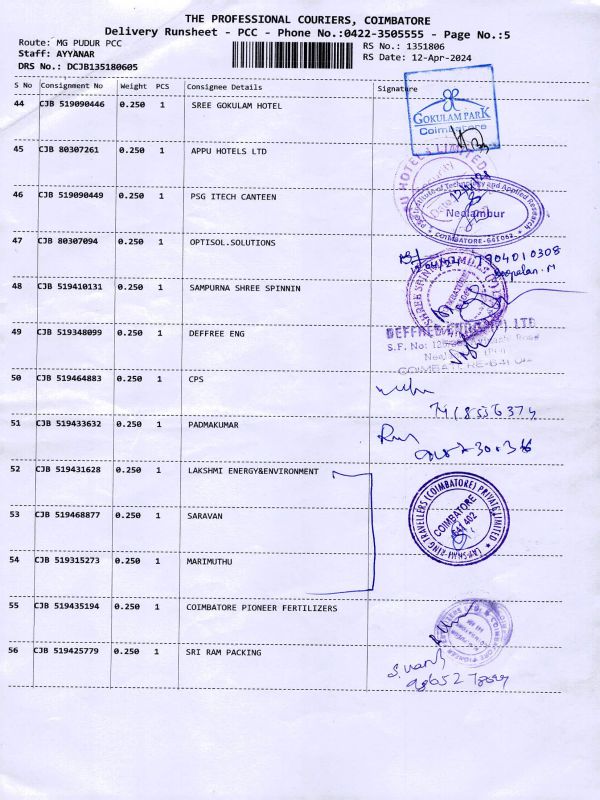 THE PROFESSIONAL COURIERS, COIMBATORE
Delivery Runsheet - PCC - Phone No.:0422-3505555 - Page No.:5
Route: MG PUDUR PCC
RS No.: 1351806
Staff: AYYANAR
RS Date: 12-Apr-2024
DRS No.: DCJB135180605
S No Consignment No Weight PCS Consignee Details Signature
44 CJB 519090446 0.250 1 SREE GOKULAM HOTEL
GOKULAM PARK
Coimbatore
45 CJB 80307261 0.250 1 APPU HOTELS LTD
46 CJB 519090449 0.250 1 PSG ITECH CANTEEN
Neelambur
COIMBATORE-641062
47 CJB 80307094 0.250 1 OPTISOL.SOLUTIONS
7904010308
48 CJB 519410131 0.250 1 SAMPURNA SHREE SPINNIN
49 CJB 519348099 0.250 1 DEFFREE ENG
S.F. No:
50 CJB 519464883 0.250 1 CPS
51 CJB 519433632 0.250 1 PADMAKUMAR
52 CJB 519431628 0.250 1 LAKSHMI ENERGY&ENVIRONMENT
TRAVELLERS (COIMBATORE) PRIVATE LIMITED
COIMBATORE
641 402
53 CJB 519468877 0.250 1 SARAVAN
54 CJB 519315273 0.250 1 MARIMUTHU
55 CJB 519435194 0.250 1 COIMBATORE PIONEER FERTILIZERS
56 CJB 519425779 0.250 1 SRI RAM PACKING